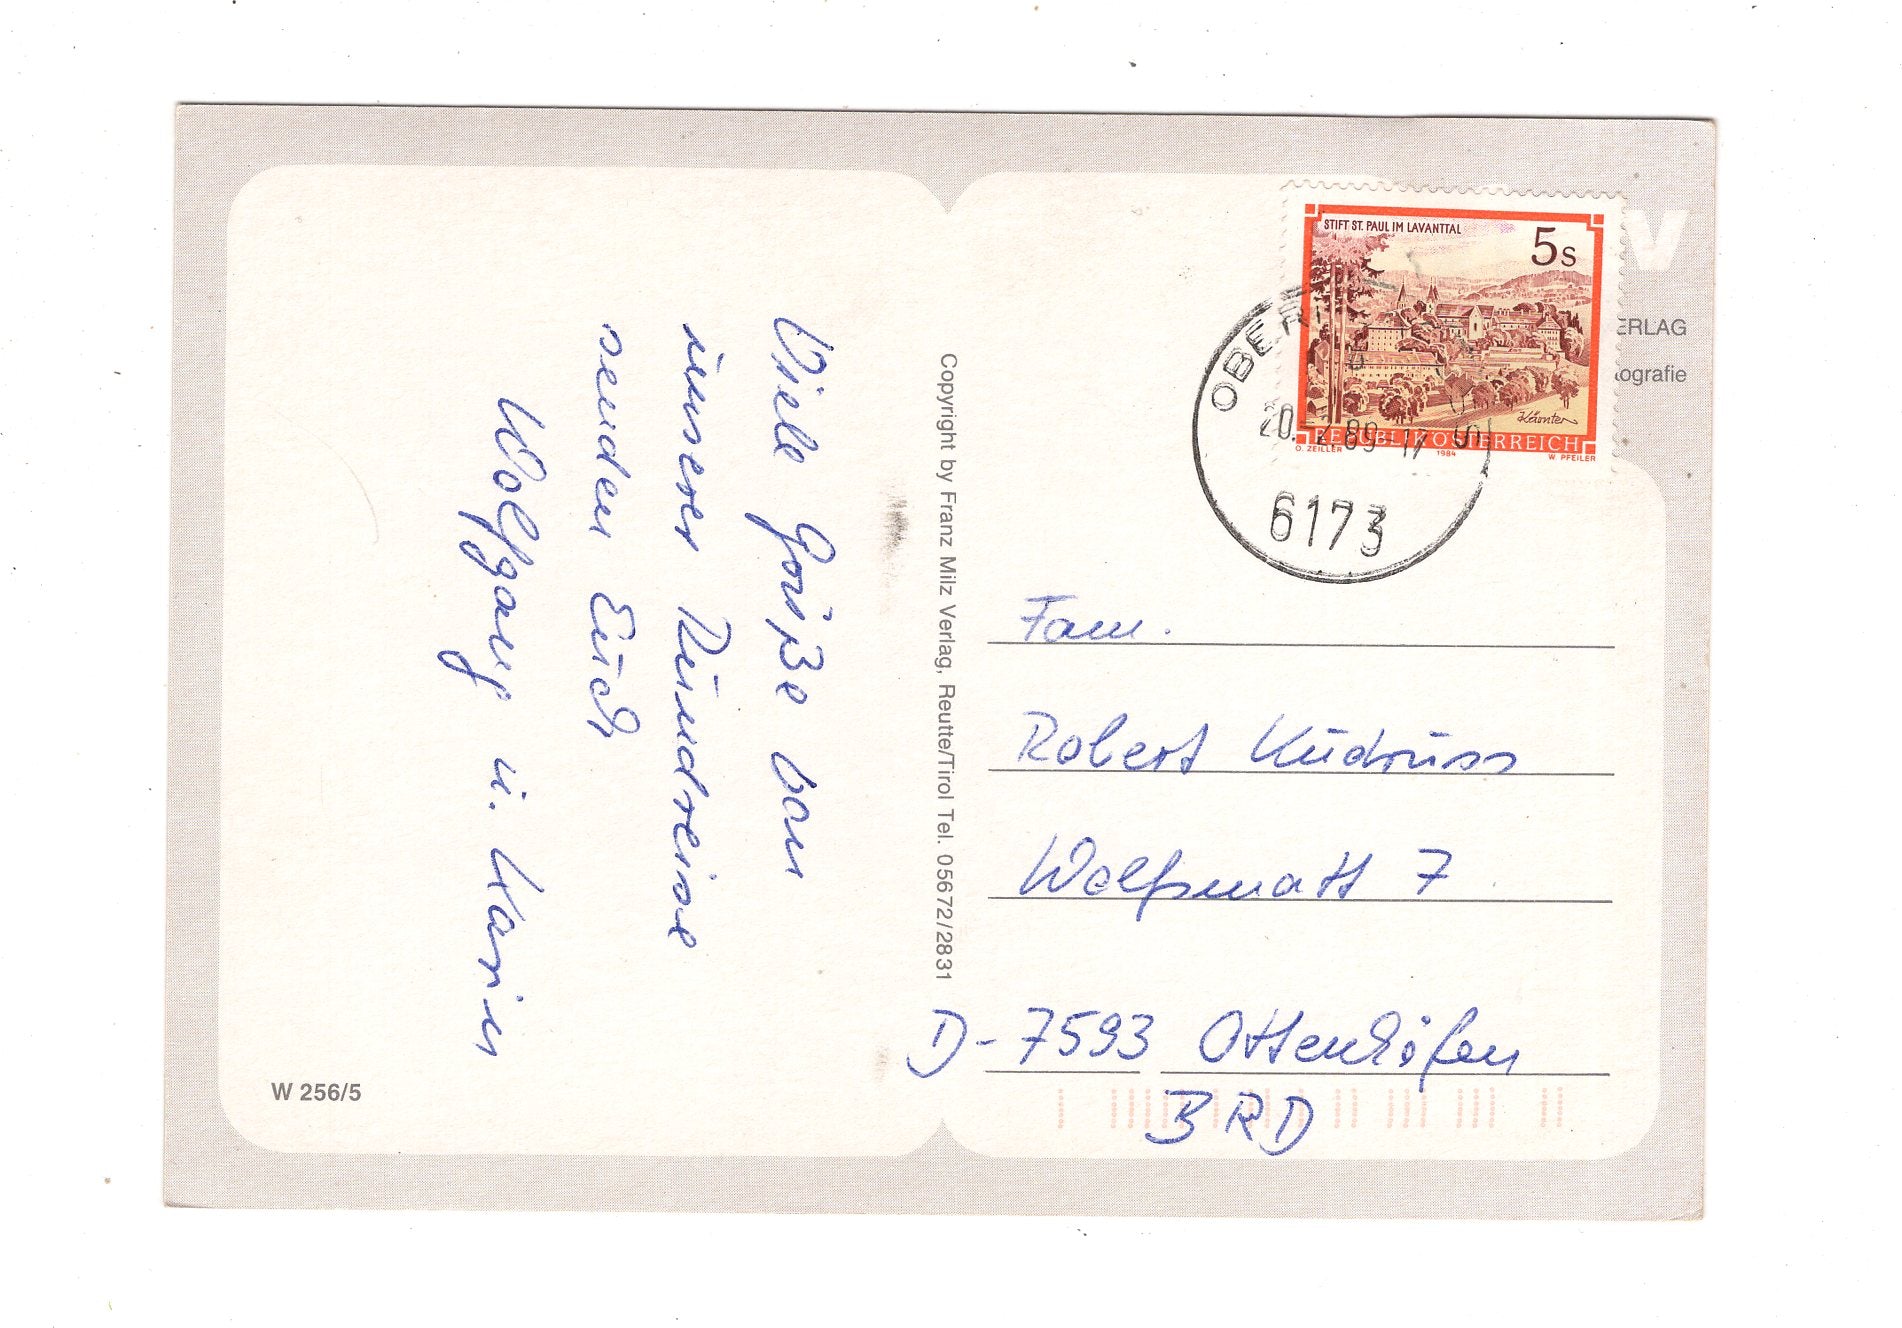 Viele Grüße von
unserer Rundreise
senden Euch
Wolfgang u. Karin
W 256/5
Copyright by Franz Milz Verlag, Reutte/Tirol Tel. 05672/2831
STIFT ST. PAUL IM LAVANTTAL
5s
Kärnten
REPUBLIK ÖSTERREICH
O. ZEILLER 1984 W. PFEILER
20. 89-17
6173
Fam.
Robert
Wolfsmatt 7
D-7593 Ottenhöfen
BRD